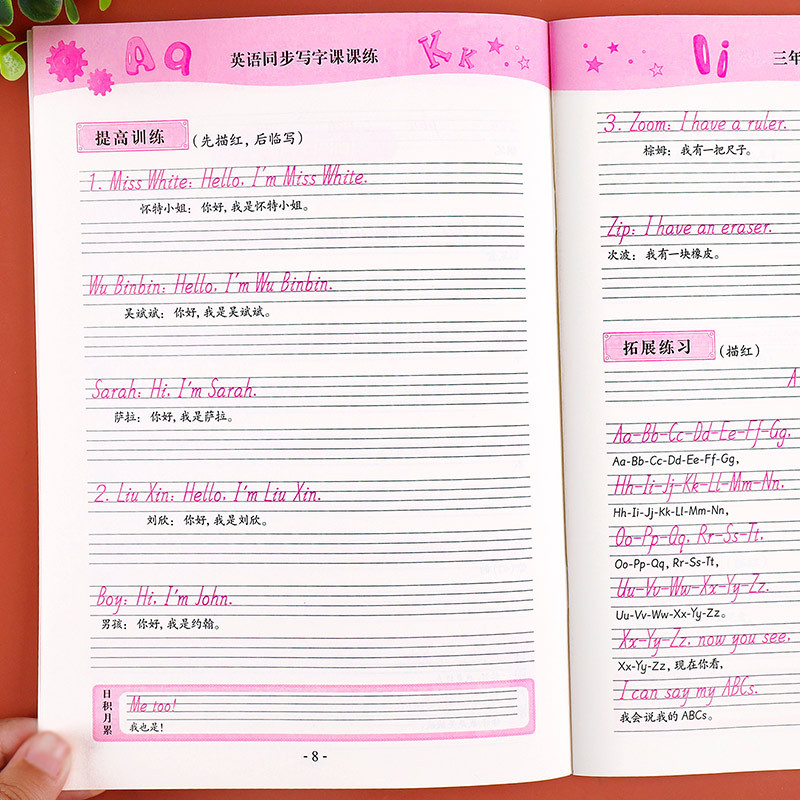 Aa
英语同步写字课课练
Kk
提高训练 (先描红，后临写)
1. Miss White: Hello, I'm Miss White.
怀特小姐：你好，我是怀特小姐。
Wu Binbin: Hello, I'm Wu Binbin.
吴斌斌：你好，我是吴斌斌。
Sarah: Hi, I'm Sarah.
萨拉：你好，我是萨拉。
2. Liu Xin: Hello, I'm Liu Xin.
刘欣：你好，我是刘欣。
Boy: Hi, I'm John.
男孩：你好，我是约翰。
日积月累
Me too!
我也是！
- 8 -
三年
3. Zoom: I have a ruler.
棕姆：我有一把尺子。
Zip: I have an eraser.
次波：我有一块橡皮。
拓展练习 (描红)
A
Aa-Bb-Cc-Dd-Ee-Ff-Gg,
Aa-Bb-Cc-Dd-Ee-Ff-Gg,
Hh-Ii-Jj-Kk-Ll-Mm-Nn,
Hh-Ii-Jj-Kk-Ll-Mm-Nn,
Oo-Pp-Qq, Rr-Ss-Tt,
Oo-Pp-Qq, Rr-Ss-Tt,
Uu-Vv-Ww-Xx-Yy-Zz.
Uu-Vv-Ww-Xx-Yy-Zz。
Xx-Yy-Zz, now you see,
Xx-Yy-Zz, 现在你看，
I can say my ABCs.
我会说我的 ABCs。